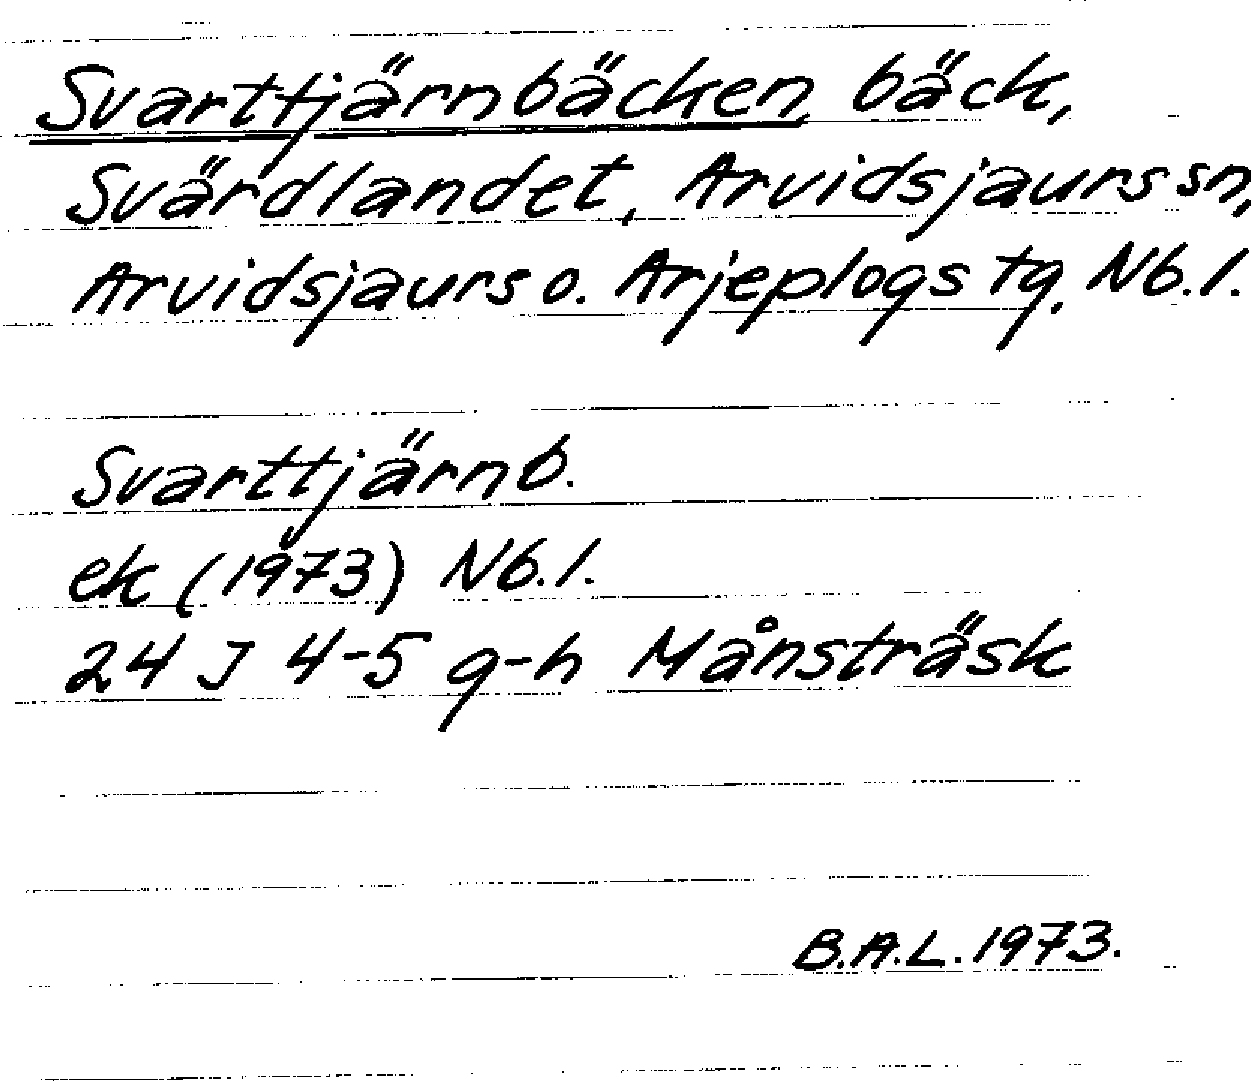 Svarttjärnbäcken, bäck,
Svärdlandet, Arvidsjaurs sn,
Arvidsjaurs o. Arjeplogs tg, Nb.l.
Svarttjärnb.
ek (1973) Nb.l.
24 J 4-5 g-h Månsträsk
B.A.L. 1973.